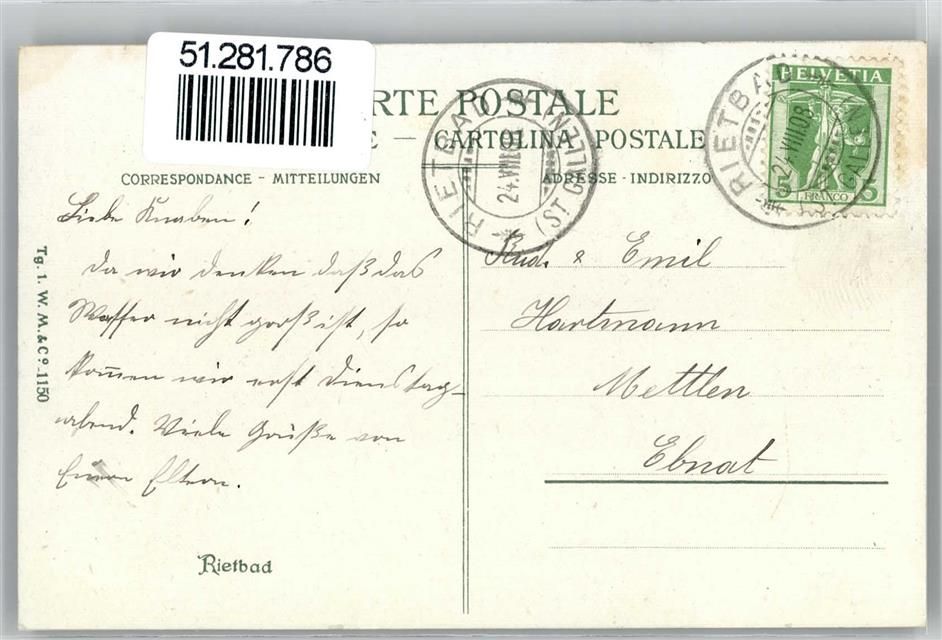 51.281.786
RTE POSTALE
E — CARTOLINA POSTALE
CORRESPONDANCE - MITTEILUNGEN
ADRESSE - INDIRIZZO
HELVETIA
5 FRANCO 5
RIETBAD (ST. GALLEN)
24.VIII.08
RIETBAD (ST. GALLEN)
24.VIII.08
Liebe Knaben!
Da wir denken daß das
Wasser nicht groß ist, so
kommen wir erst Dienstag-
abend. Viele Grüße von
Euern Eltern.
Rud. & Emil
Hartmann
Mettlen
Ebnat
Tg. 1. W. M. & Cº. 1150
Rietbad